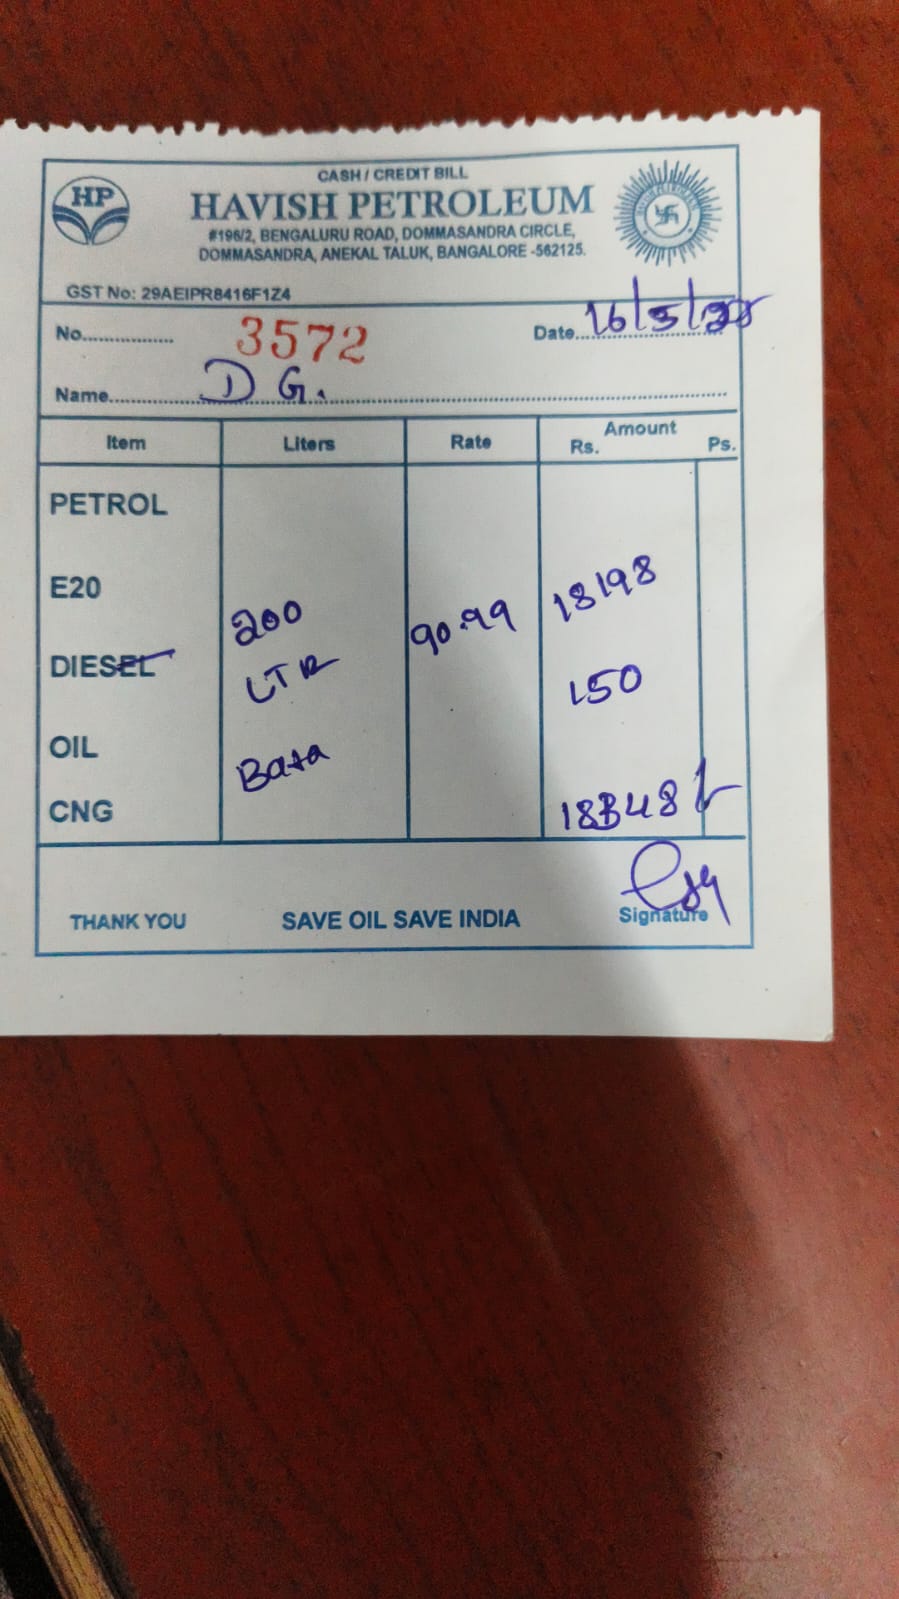 CASH / CREDIT BILL
HP
HAVISH PETROLEUM
#196/2, BENGALURU ROAD, DOMMASANDRA CIRCLE,
DOMMASANDRA, ANEKAL TALUK, BANGALORE -562125.
GST No: 29AEIPR8416F1Z4
No................. 3572 Date... 16/5/25
Name........ D G.
Item Liters Rate Amount
Rs. Ps.
PETROL
E20
DIESEL 200 LTR 90.99 18198
150
OIL
Bata
CNG 18348
THANK YOU SAVE OIL SAVE INDIA Signature